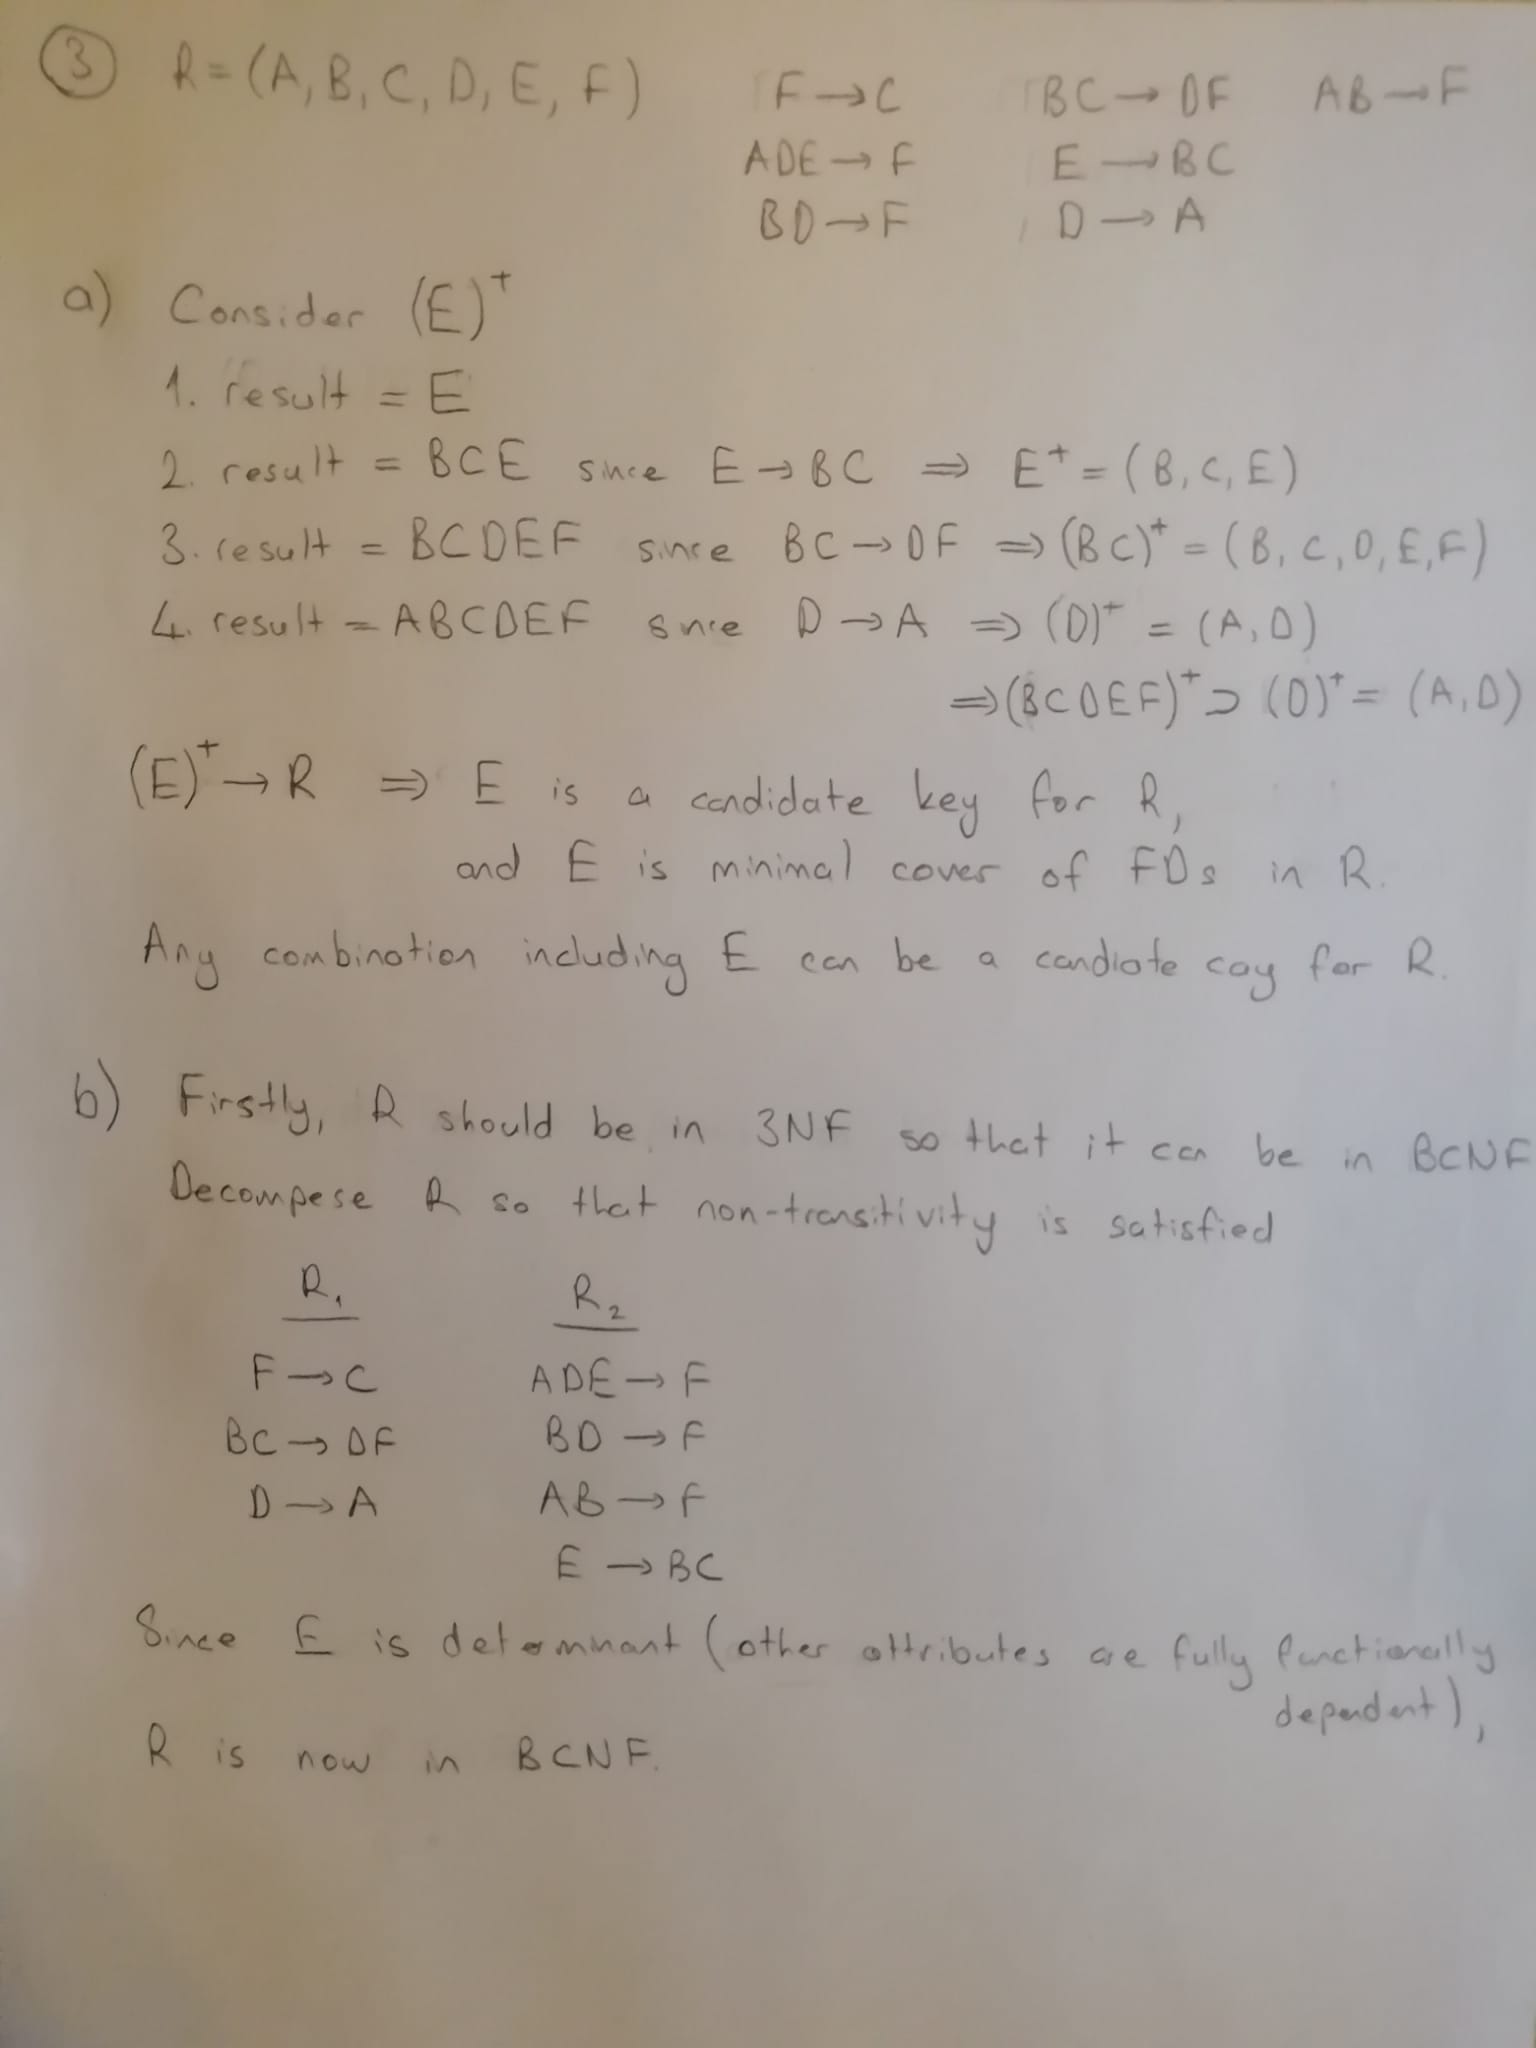 3 R=(A,B,C,D,E,F) F→C BC→DF AB→F
ADE→F E→BC
BD→F D→A
a) Consider (E)⁺
1. result = E
2. result = BCE since E→BC ⇒ E⁺=(B,C,E)
3. result = BCDEF since BC→DF ⇒ (BC)⁺=(B,C,D,E,F)
4. result = ABCDEF since D→A ⇒ (D)⁺ = (A,D)
⇒(BCDEF)⁺⊃(D)⁺= (A,D)
(E)⁺→R ⇒ E is a candidate key for R,
and E is minimal cover of FDs in R.
Any combination including E can be a candiate cay for R.
b) Firstly, R should be in 3NF so that it can be in BCNF
Decompese R so that non-transitivity is satisfied
R₁ R₂
F→C ADE→F
BC→DF BD→F
D→A AB→F
E→BC
Since E is determinant (other attributes are fully functionally
dependent),
R is now in BCNF.